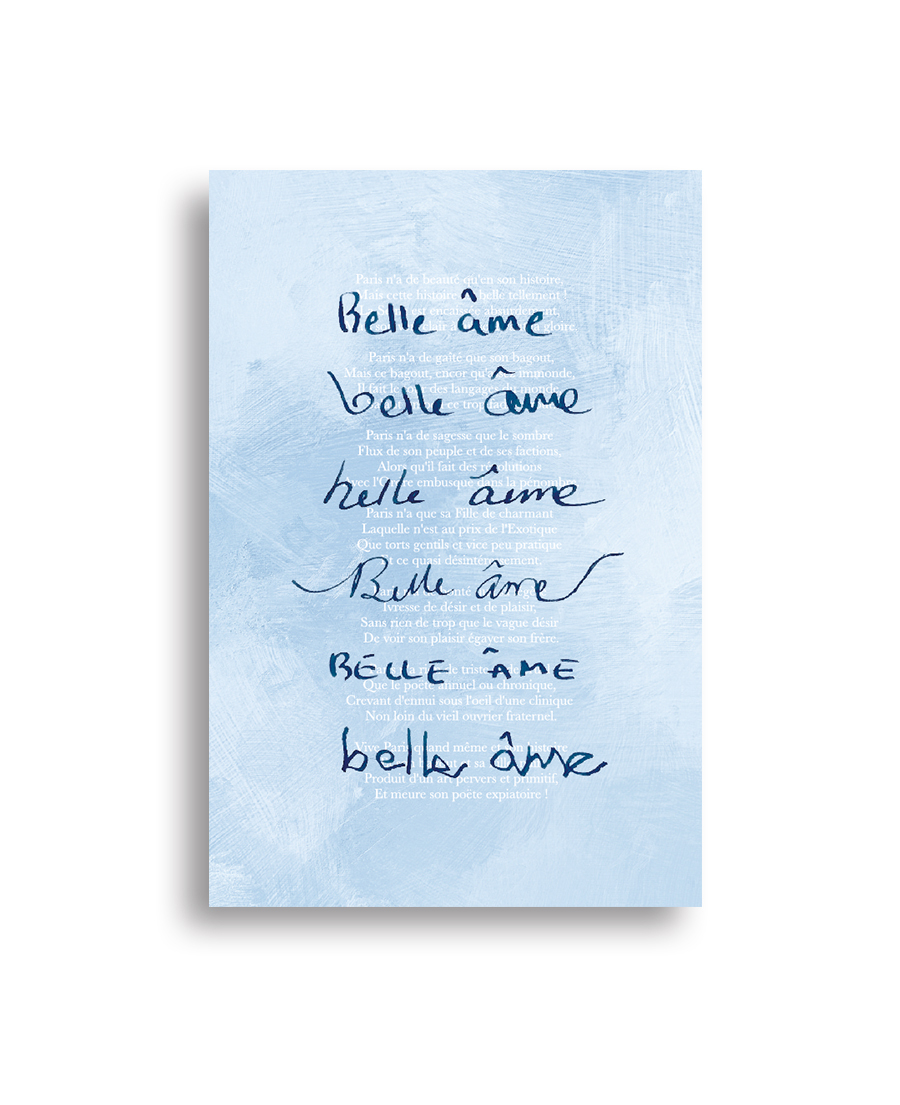 Paris n'a de beauté qu'en son histoire,
Mais cette histoire belle tellement !
Belle âme
est absurdement,
gloire.
Paris n'a de gaîté que son bagout,
Mais ce bagout, encor immonde,
Il fait le des langages du monde
belle âme
ce trop
Paris n'a de sagesse que le sombre
Flux de son peuple et de ses factions,
Alors qu'il fait des révolutions
Avec l'Ordre embusqué dans la pénombre
belle âme
Paris n'a que sa Fille de charmant
Laquelle n'est au prix de l'Exotique
Que torts gentils et vice peu pratique
Et ce quasi désintéressement.
Belle âme
Ivresse de désir et de plaisir,
Sans rien de trop que le vague désir
De voir son plaisir égayer son frère.
BELLE ÂME
de
Que le poète annuel ou chronique,
Crevant d'ennui sous l'oeil d'une clinique
Non loin du vieil ouvrier fraternel.
Vive Paris quand même et son histoire
belle âme
et sa
Produit d'un art pervers et primitif,
Et meure son poète expiatoire !